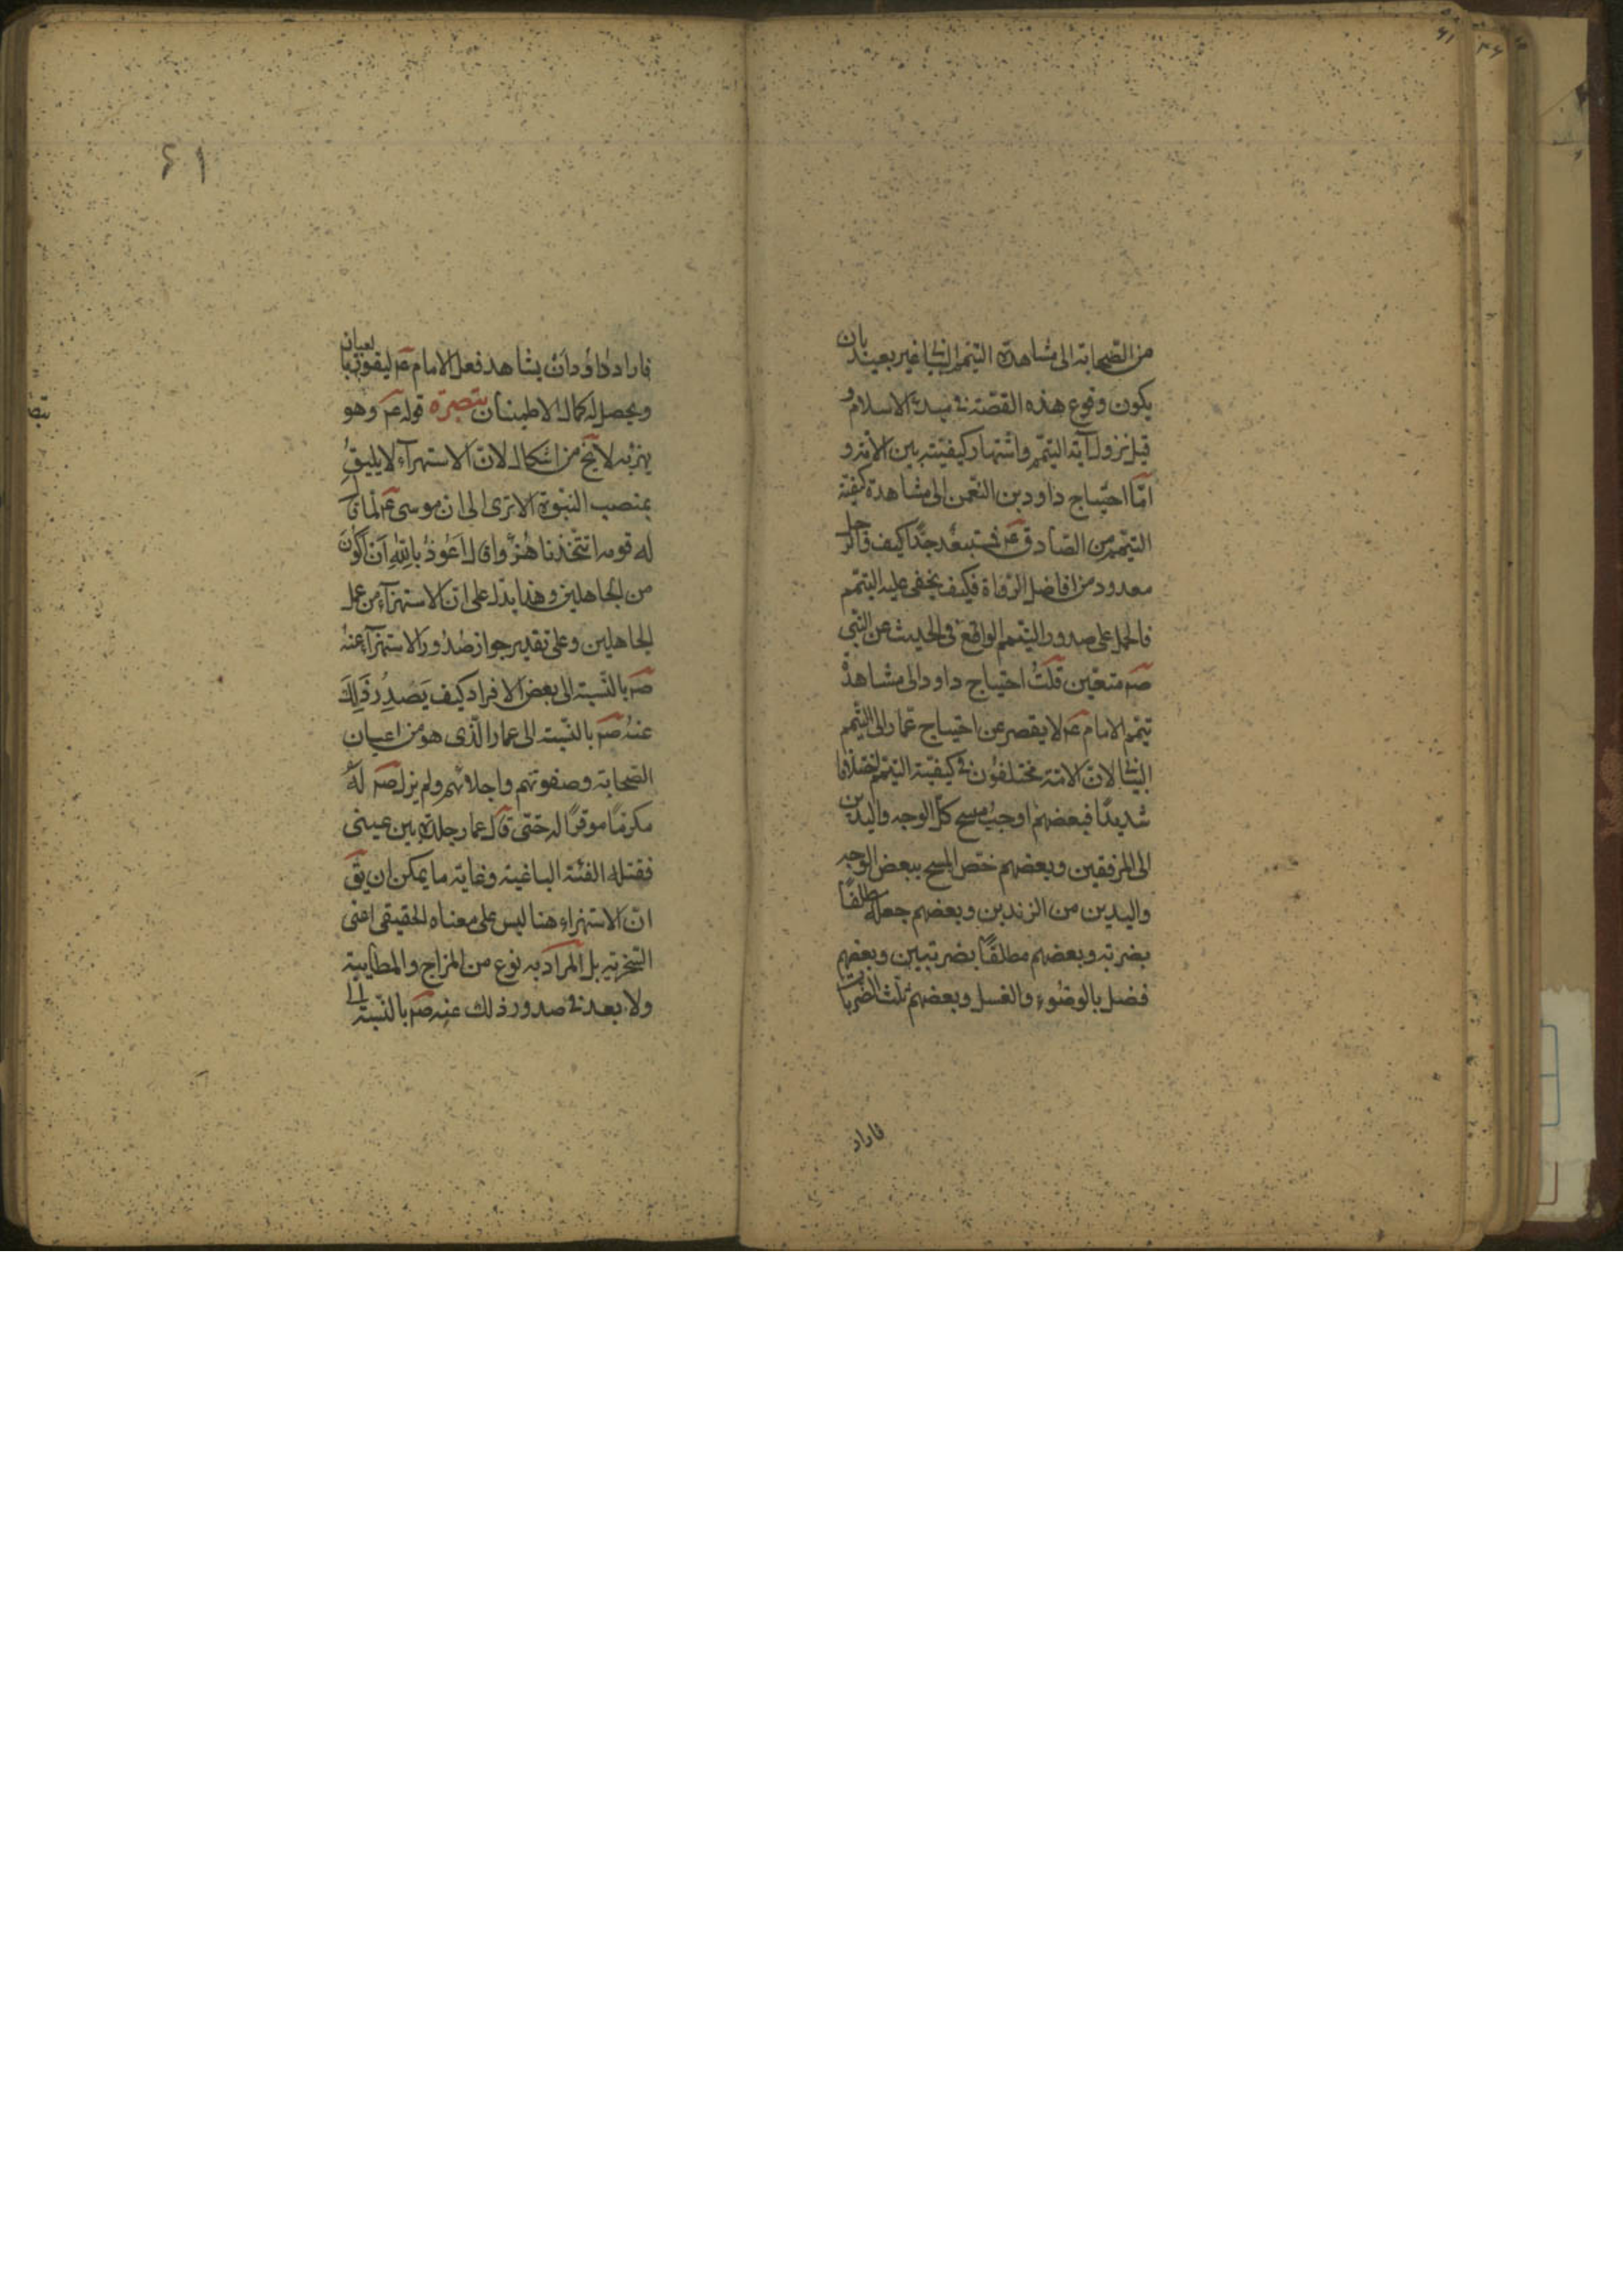 من الصحابة الى مشاهدة التيمم البيانى غير بعيد بان
يكون وقوع هذه القصّة فى مبدء الاسلام و
قبل نزول آية التيمّم واشتهار كيفيّته بين الامّة و
امّا احتياج داود بن النعمن الى مشاهدة كيفيّة
التيمّم من الصّادق عم فمستبعدٌ جدّاً كيف والرّجل
معدود من افاضل الرّواة فكيف يخفى عليه التيمّم
فالحمل على صدور التيمم الواقع فى الحديث عن النبى
صم متعيّن قلتُ احتياج داود الى مشاهدة
تيمّم الامام عم لا يقصر عن احتياج عمار الى التيمّم
البيانى لانّ الامّة مختلفون فى كيفيّة التيمّم اختلافا
شديدًا فبعضهم اوجب مسح كلّ الوجه واليدين
الى المرفقين وبعضهم خصّ المسح ببعض الوجه
واليدين من الزندين وبعضهم جعله مطلقًا
بضربة وبعضهم مطلقًا بضربتين وبعضهم
فصل بالوضوء والغسل وبعضهم ثلّث الضربات
فاراد
۶۱
فاراد داود ان يشاهد فعل الامام عم ليفوز بالعيان
ويحصل له كمال الاطمينان تبصرة قوله عم وهو
يهزء به لا يخ من اشكال لانّ الاستهزآء لا يليقُ
بمنصب النبوة الا ترى الى ان موسى عم لما قال
له قومه اتتخذنا هُزُوًا قال اَعُوذُ بِاللّهِ اَن اَكُونَ
من الجاهلين وهذا يدّل على انّ الاستهزآء من عمل
الجاهلين وعلى تقدير جواز صُدُور الاستهزآء عنهُ
صم بالنّسبة الى بعض الافراد كيف يَصدِرُ ذَلِكَ
عنهُ صم بالنّسبة الى عمار الّذى هو من اعيان
الصّحابة وصفوتهم واجلائهم ولم يزل صم لهُ
مكرمًا موقرًا له حتّى قال عمار جلدة بين عينى
فقتله الفئة الباغية وغاية ما يمكن ان يق
انّ الاستهزاء هنا ليس على معناه الحقيقى اعنى
السّخرية بل المراد به نوع من المزاح والمطايبة
ولا بعد فى صدور ذلك عنه صم بالنّسبة الى